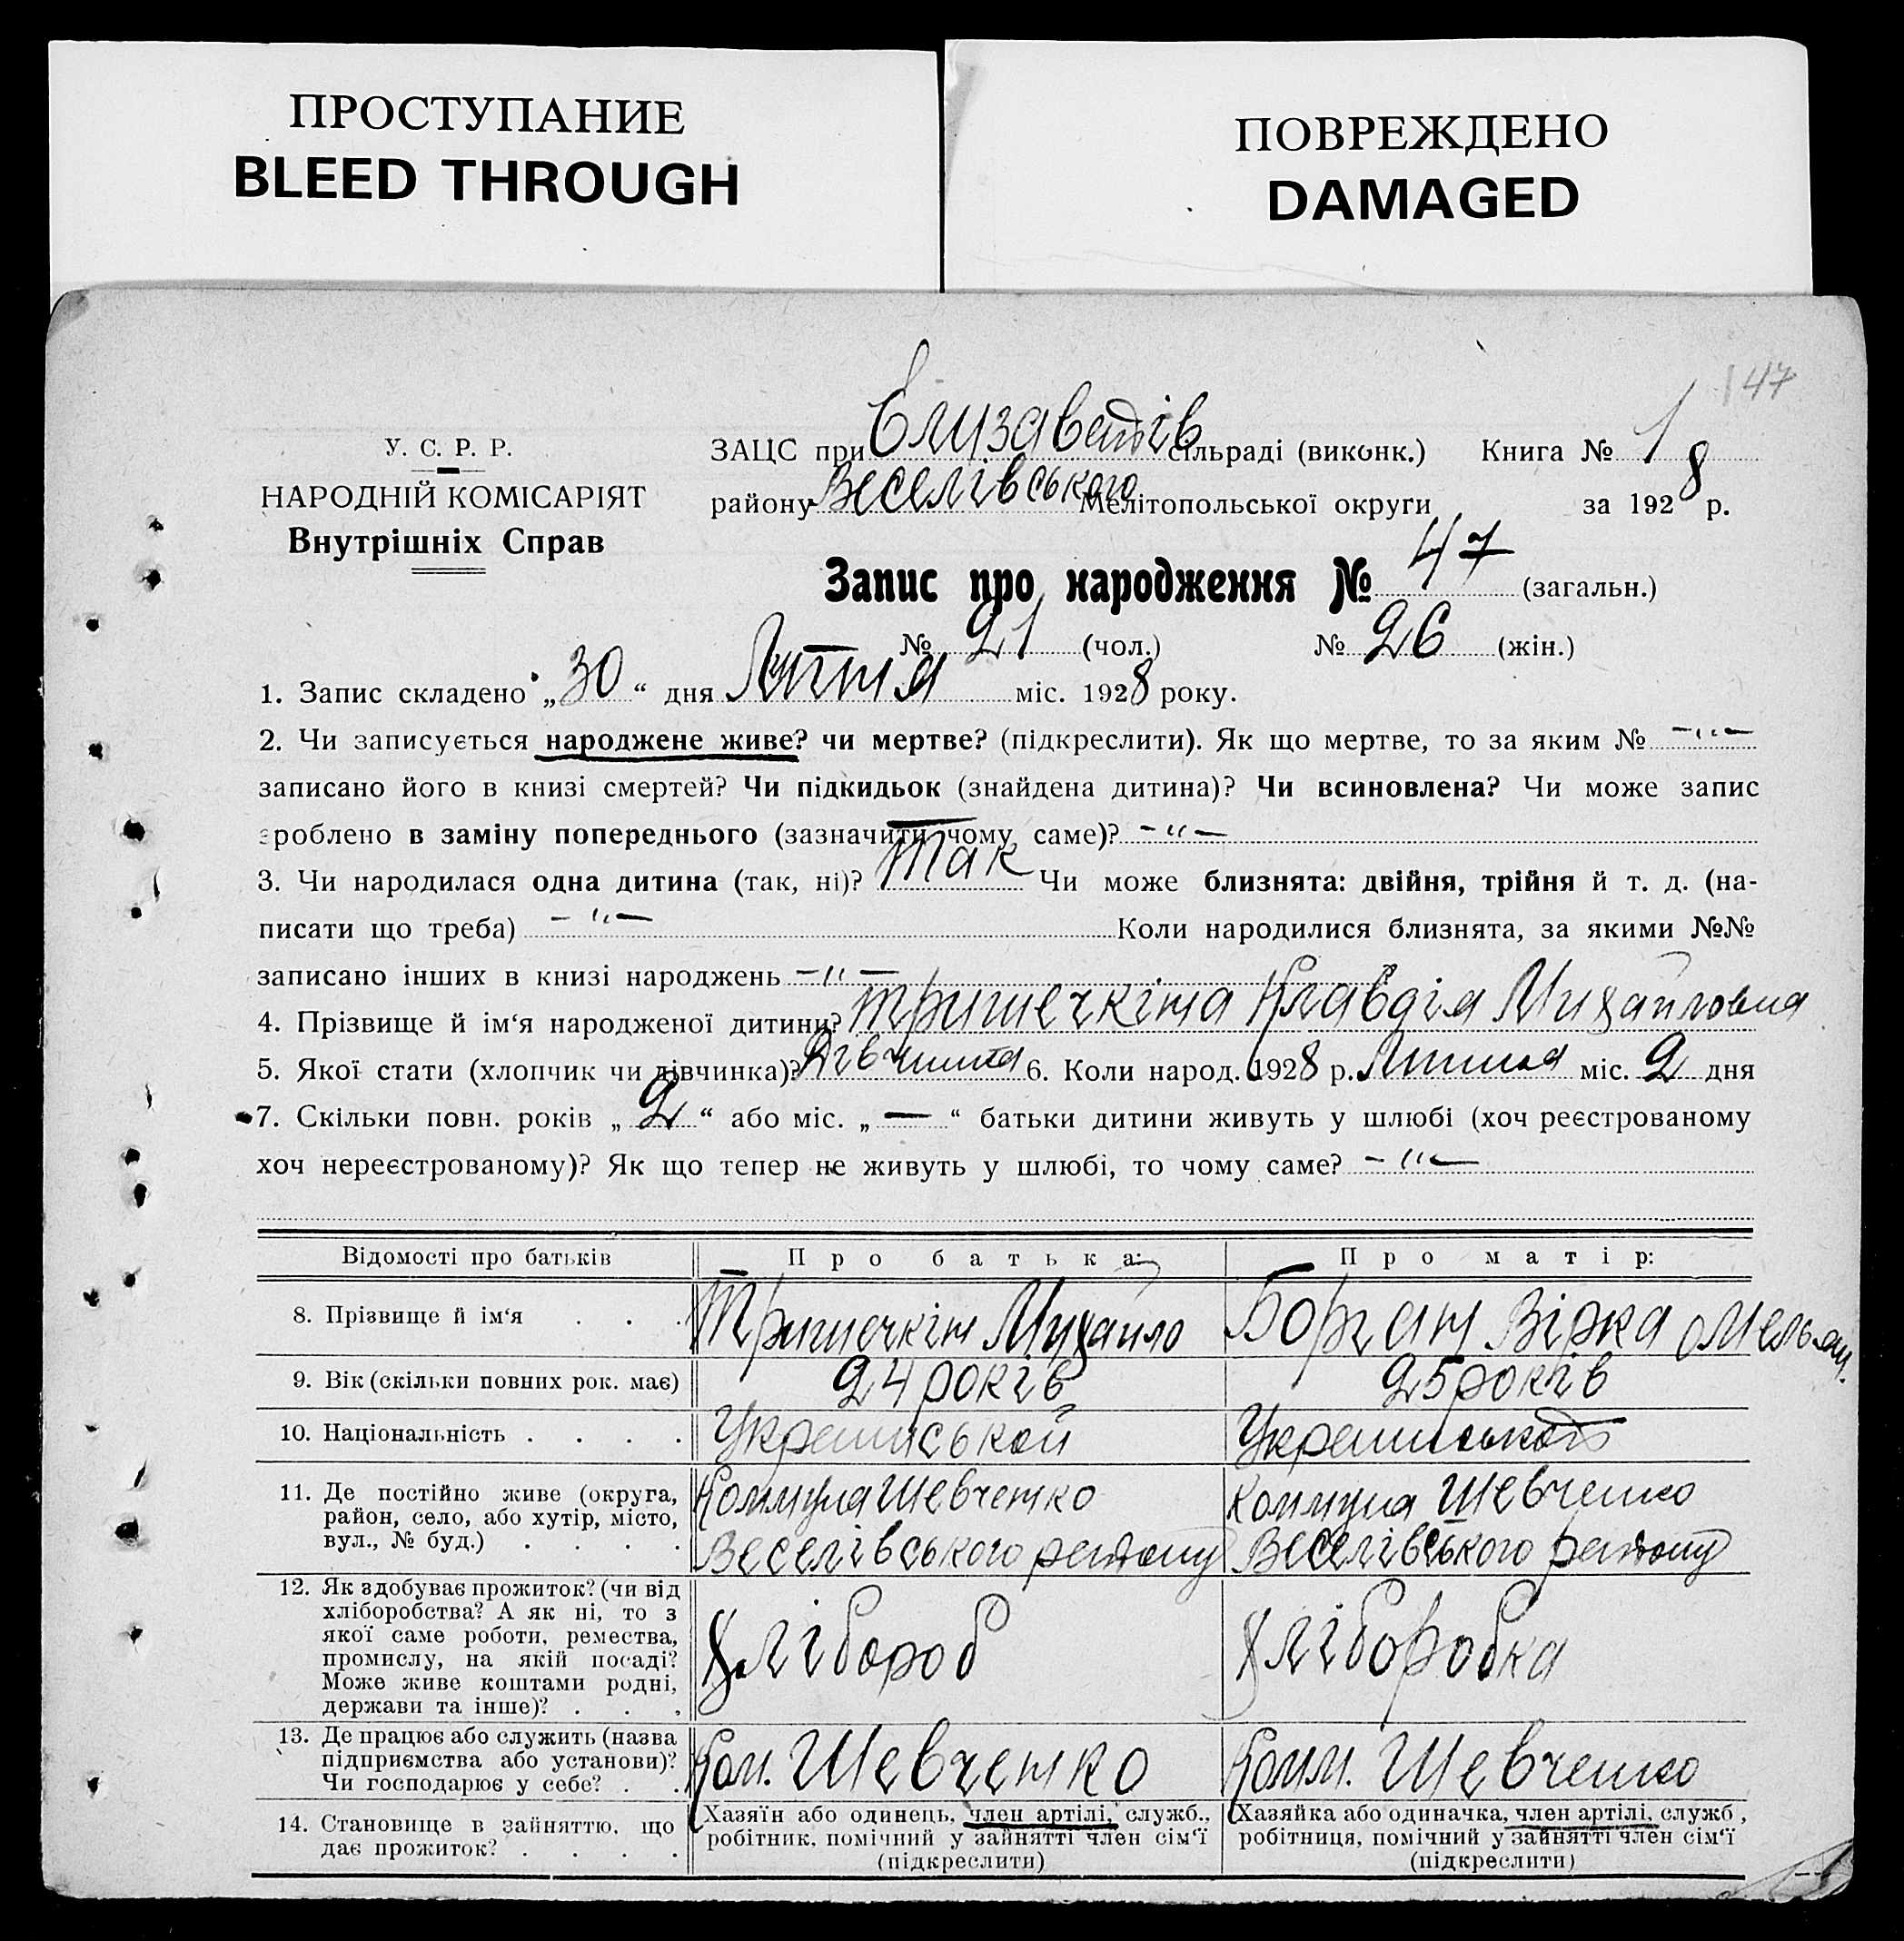 ПРОСТУПАНИЕ
BLEED THROUGH
ПОВРЕЖДЕНО
DAMAGED
147
У. С. Р. Р.
НАРОДНІЙ КОМІСАРІЯТ
Внутрішніх Справ
ЗАЦС при Єлизаветів сільраді (виконк.) Книга № 1
району Веселівського Мелітопольської округи за 1928 р.
Запис про народження № 47 (загальн.)
№ 21 (чол.) № 26 (жін.)
1. Запис складено „30“ дня Липня міс. 1928 року.
2. Чи записується народжене живе? чи мертве? (підкреслити). Як що мертве, то за яким № -"-
записано його в книзі смертей? Чи підкидьок (знайдена дитина)? Чи всиновлена? Чи може запис
зроблено в заміну попереднього (зазначити чому саме)? -"-
3. Чи народилася одна дитина (так, ні)? Так Чи може близнята: двійня, трійня й т. д. (на-
писати що треба) -"- Коли народилися близнята, за якими №№
записано інших в книзі народжень -"-
4. Прізвище й ім‘я народженої дитини? Тришечкіна Клавдія Михайловна
5. Якої стати (хлопчик чи дівчинка)? Дівчина 6. Коли народ. 1928 р. Липня міс. 2 дня
7. Скільки повн. років „2“ або міс. „—“ батьки дитини живуть у шлюбі (хоч реєстрованому
хоч нереєстрованому)? Як що тепер не живуть у шлюбі, то чому саме? -"-
Відомості про батьків Про батька: Про матір:
8. Прізвище й ім‘я . . . Тришечкін Михайло Борган Вірка Омельян.
9. Вік (скільки повних рок. має) 24 років 25 років
10. Національність . . . . Української Української
11. Де постійно живе (округа, район, село, або хутір, місто, вул., № буд.) . . . .
Коммуна Шевченко
Веселівського району
Коммуна Шевченко
Веселівського району
12. Як здобуває прожиток? (чи від хліборобства? А як ні, то з якої саме роботи, ремества, промислу, на якій посаді? Може живе коштами родні, держави та інше)? . . .
Хлібороб
Хліборобка
13. Де працює або служить (назва підприємства або установи)? Чи господарює у себе? . .
Ком. Шевченко
Комм. Шевченко
14. Становище в зайняттю, що дає прожиток? . . . .
Хазяїн або одинець, член артілі, служб.,
робітник, помічний у зайнятті член сім‘ї
(підкреслити)
Хазяйка або одиначка, член артілі, служб.,
робітниця, помічний у зайнятті член сім‘ї
(підкреслити)